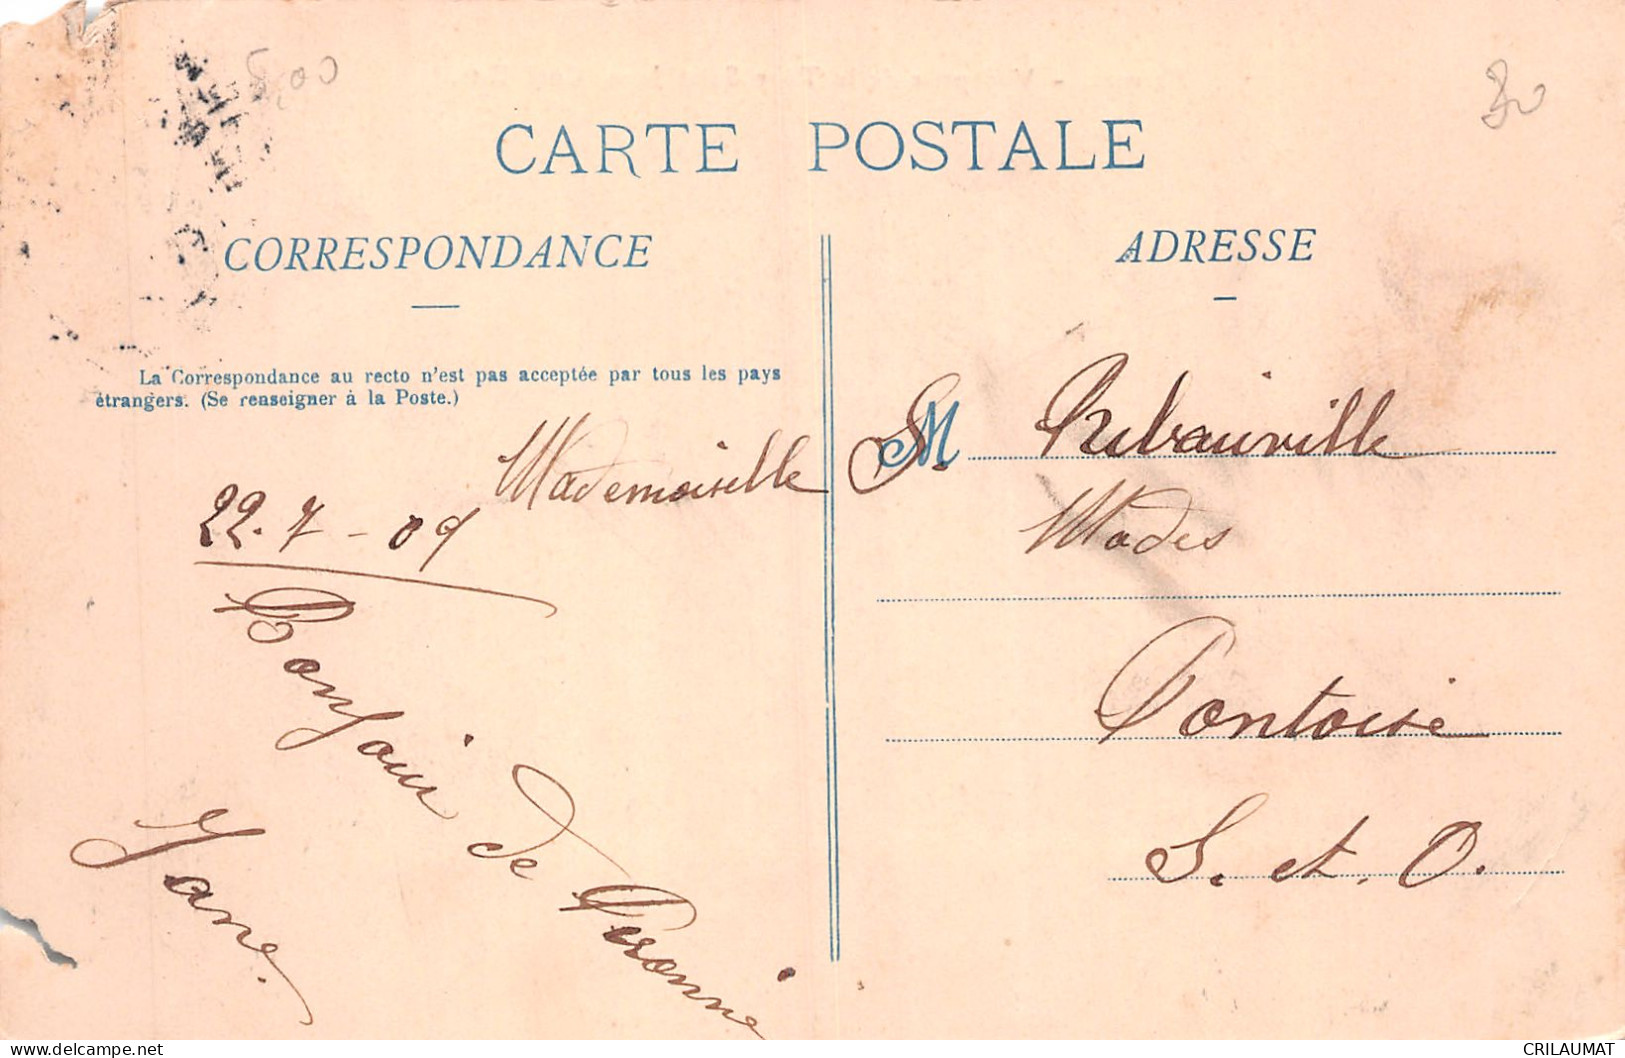 CARTE POSTALE
CORRESPONDANCE
La Correspondance au recto n'est pas acceptée par tous les pays
étrangers. (Se renseigner à la Poste.)
22.7-09
Bonjour de
Peronne
Jane.
ADRESSE
Mademoiselle S. M
Modes
Pontoise
S. et. O.
CRILAUMAT